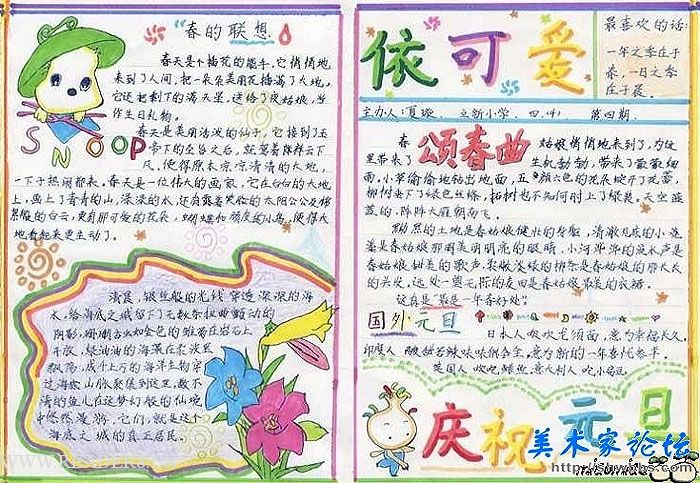 春的联想
春天是个插花的能手,它悄悄地
来到了人间,把一朵朵美丽花插满了大地,
它还把剩下的满天星,送给了夜姑娘,当
作生日礼物。
春天是美丽活泼的仙子,它接到了玉
帝下的圣旨之后,就驾着祥云下
凡,使得原本凉凉清清的大地,
一下子热闹起来。春天是一位伟大的画家,它在白白的大地
上,画上了青青的山,绿绿的水,还有露着笑脸的太阳公公及棉
袄般的白云,更有那可爱的花朵,蝴蝶和顽皮的小鸟,使得大
地看起来更生动了。
SNOOP
清晨,银丝般的光线穿透深深的海
水,给海底之城留下了无数条扭曲颤动的
阴影,珊瑚宛如金色的雏菊在岩石上
开放,绿油油的海藻在袅袅
飘荡,成千上万的海洋生物穿
过海底山脉聚集到这里,数不
清的鱼儿在这梦幻般的仙境
中悠然漫游,它们,就是这个
海底之城的真正居民。
依可爱
最喜欢的话:
一年之季在于
春,一日之季
在于晨。
主办人:夏璇 立新小学 四.(4) 第四期.
颂春曲
春 姑娘悄悄地来到了,为这
里带来了 生机勃勃,带来了
雨,小草偷偷地钻出地面,五颜六色的花朵绽开了花蕾,
柳树垂下了绿色丝绦,柘树也不知何时上了绿装。天空蓝
蓝的,阵阵大雁朝南飞。
黝黑的土地是春姑娘健壮的身躯,清澈见底的小
是春姑娘那明亮的眼睛,小河哗哗的流水声是
春姑娘甜美的歌声,
的头发,这处一望无际的麦田是春姑娘最美的衣裙。
这真是“最是一年春好处”
国外元旦
日本人吃吃龙须面,意为幸福长久。
印度人 酸甜苦辣味味俱全,意为新的一年喜忧参半。
英国人 吃鲤鱼 意大利人 吃小扁豆
庆祝元旦
美术家论坛
http://shwbbs.com